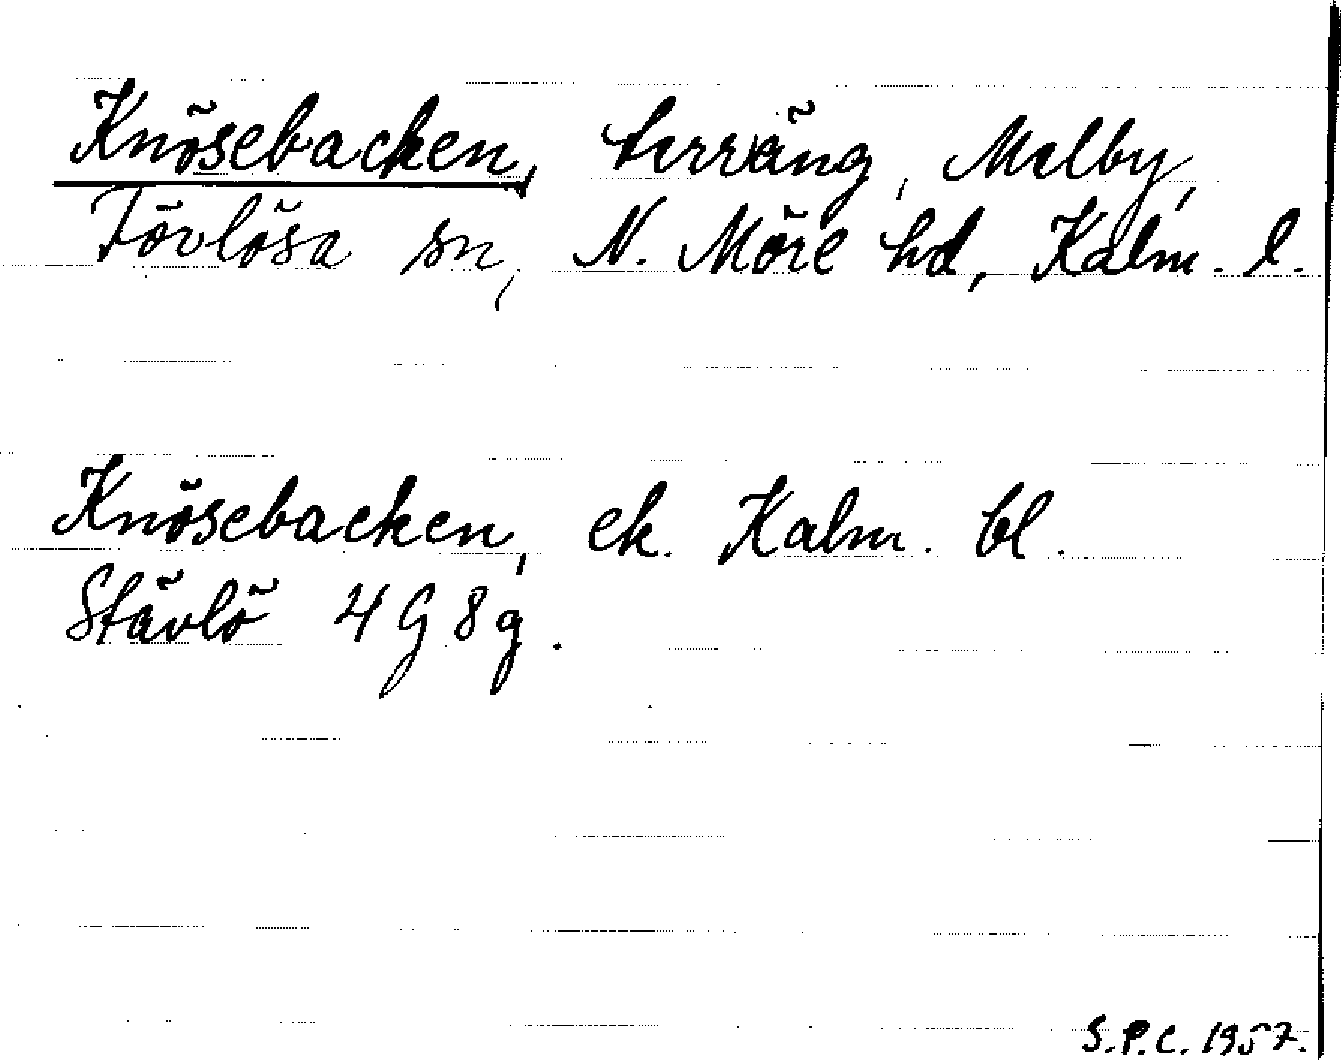 Knösebacken, terräng, Melby,
Förlösa sn, N. Möre hd, Kalm. l.
Knösebacken, ek. Kalm. bl.
Stävlö 4G8g.
S.P.C. 1957.